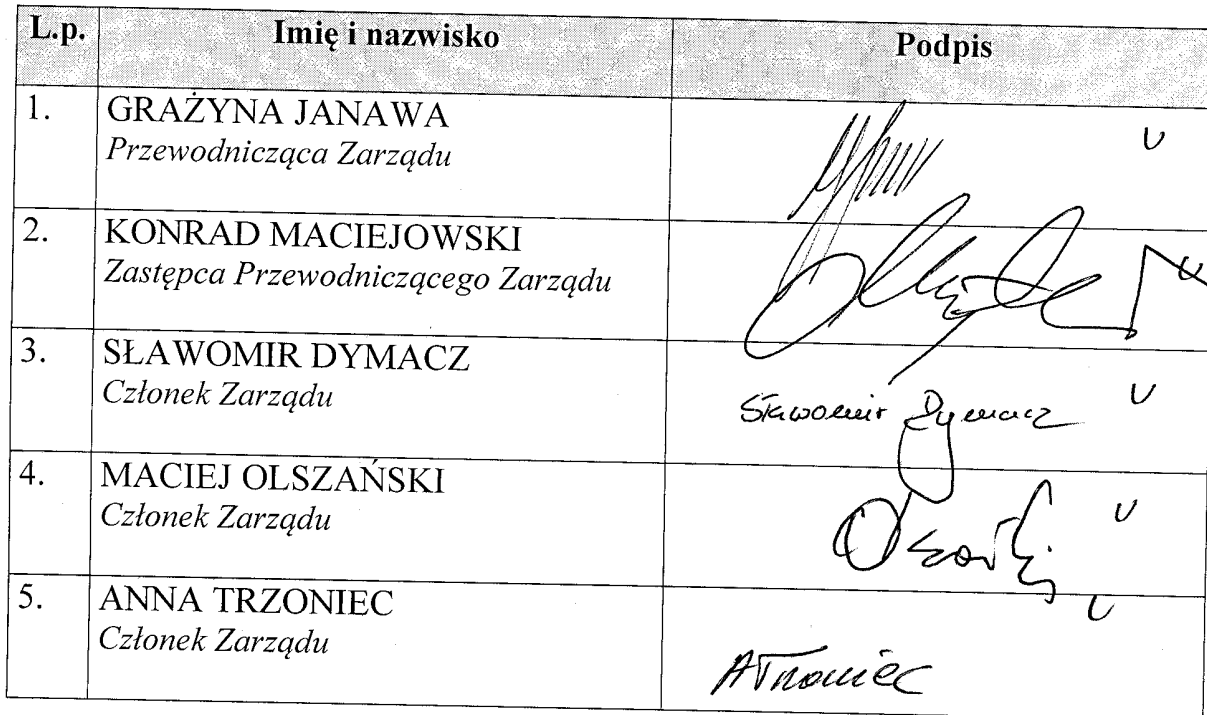 L.p. Imię i nazwisko Podpis
1. GRAŻYNA JANAWA
Przewodnicząca Zarządu
2. KONRAD MACIEJOWSKI
Zastępca Przewodniczącego Zarządu
3. SŁAWOMIR DYMACZ
Członek Zarządu
Sławomir Dymacz
4. MACIEJ OLSZAŃSKI
Członek Zarządu
5. ANNA TRZONIEC
Członek Zarządu
ATrzoniec